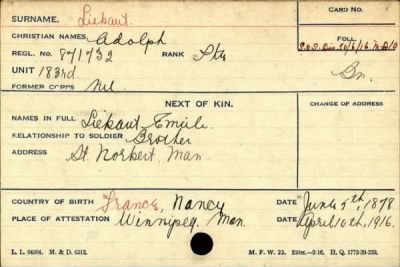 SURNAME. Liekaut. CARD NO.
CHRISTIAN NAMES Adolph
REGL. NO. 871732 RANK Pte FOLL
UNIT 183rd. Bn.
FORMER CORPS Nil
NEXT OF KIN. CHANGE OF ADDRESS
NAMES IN FULL Liekaut Emile
RELATIONSHIP TO SOLDIER Brother
ADDRESS St. Norbert, Man
COUNTRY OF BIRTH France, Nancy DATE June 5th, 1878
PLACE OF ATTESTATION Winnipeg, Man. DATE April 10th, 1916.
L. L. 94504. M. & D. 6512. M. F. W. 22. 250M.-2-16. H. Q. 1772-39-339.